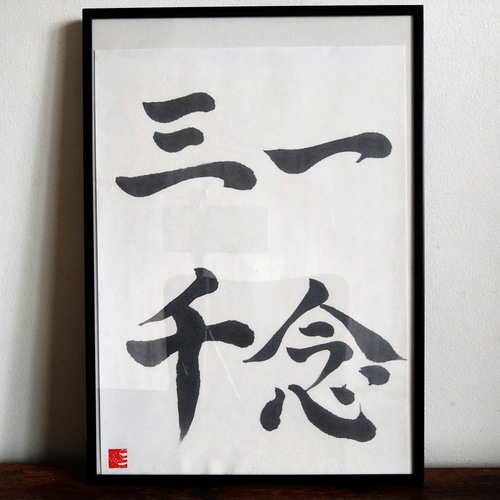 一念
三千